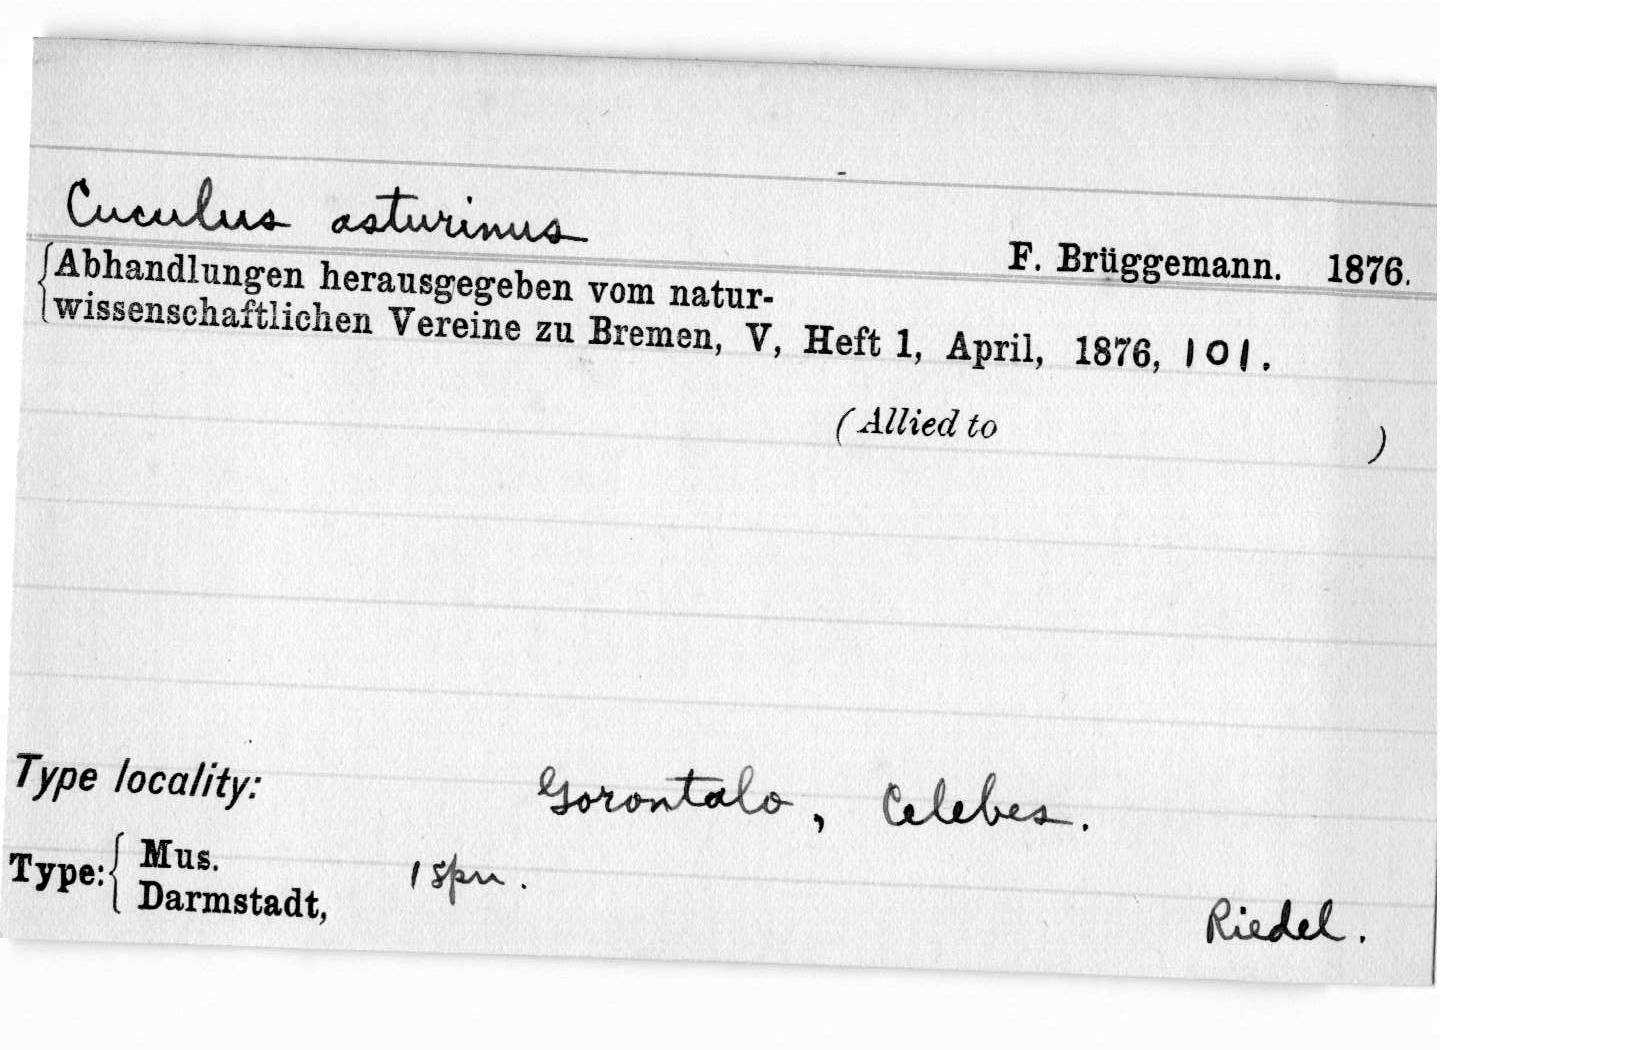 Cuculus asturinus
F. Brüggemann. 1876.
Abhandlungen herausgegeben vom natur-
wissenschaftlichen Vereine zu Bremen, V, Heft 1, April, 1876, 101.
(Allied to )
Type locality: Gorontalo, Celebes.
Type: Mus. Darmstadt, 1 spn.
Riedel.